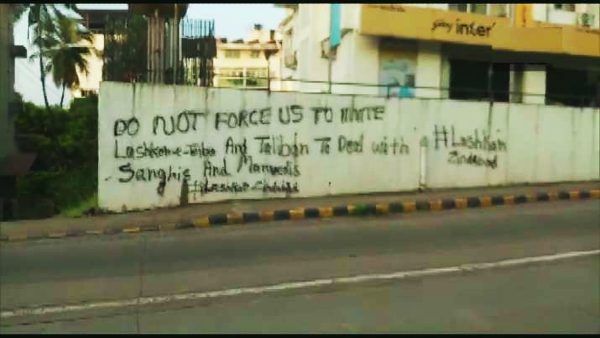 DO NOT FORCE US TO INVITE
Lashkar-e-Taiba And Taliban To Deal with
Sanghis And Manvedis
#Lashkar Zindabad
#Lashkar
Zindabad
inter